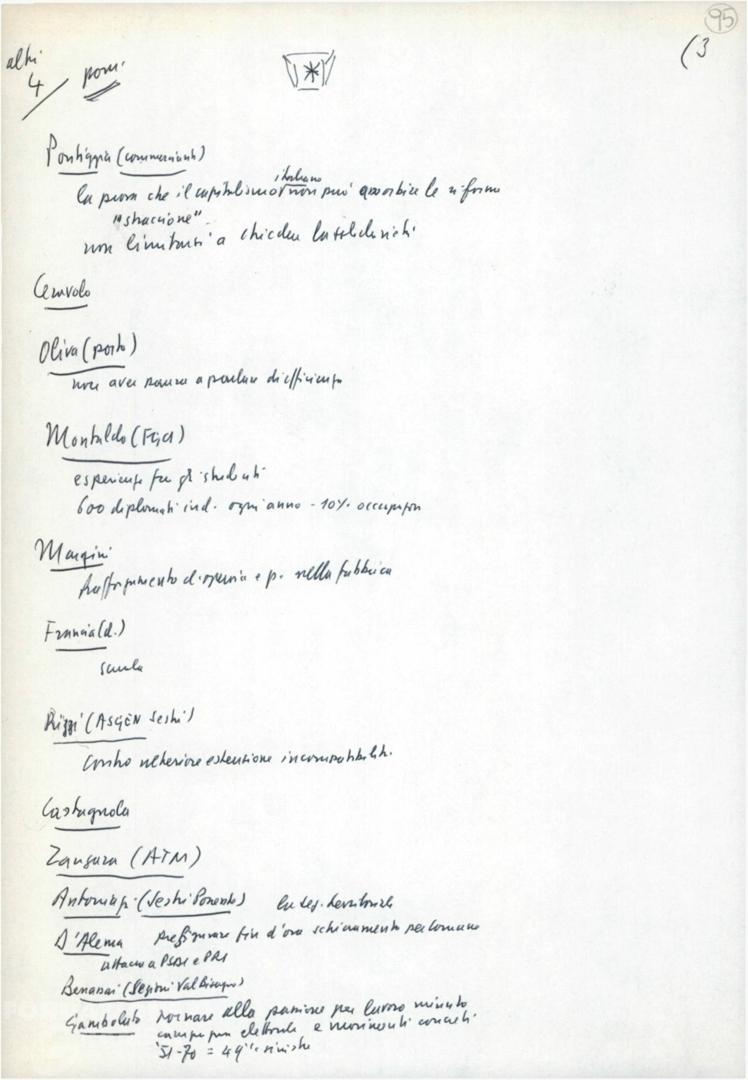 95
(3
altri
4
pom.
*
Pontiggia (commercianti)
la prova che il capitalismo italiano non può assorbire le riforme
"straccione"
non limitarsi a chiedere la
Ceravolo
Oliva (porto)
non aver paura a parlare di efficienza
Montaldo (FGCI)
esperienze fra gli studenti
600 diplomati ind. ogni anno - 10% occupaz.
Margini
d. operaia e p. nella fabbrica
Francia (d.)
scuola
Rizzi (ASGEN Sestri)
contro ulteriore estensione incompatibilit.
Castagnola
Zangara (ATM)
(Sestri Ponente) la sez. territoriale
D'Alema prefigurare fin d'ora schieramento per comune
attacco a PSDI e PRI
Benassi (Segni Val Bisagno)
Gambolato tornare alla passione per lavoro minuto
campagna elettorale e movimenti concreti
'51-70 = 49% sinistre